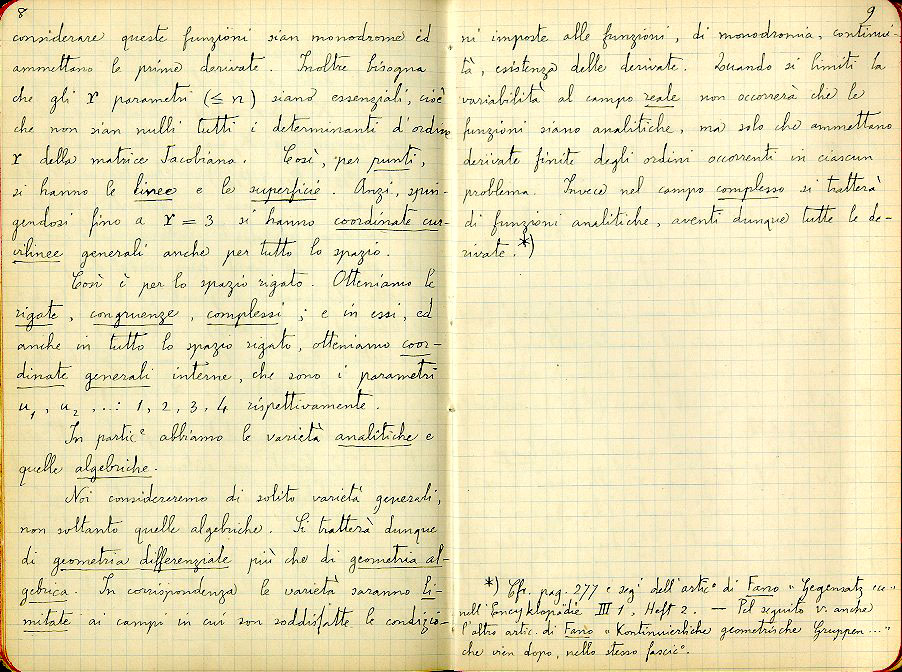 8
considerare queste funzioni sian monodrome ed
ammettano le prime derivate. Inoltre bisogna
che gli r parametri (≤ n) siano essenziali, cioè
che non sian nulli tutti i determinanti d'ordine
r della matrice Jacobiana. Così, per punti,
si hanno le linee e le superficie. Anzi, spin-
gendosi fino a r = 3 si hanno coordinate cur-
vilinee generali anche per tutto lo spazio.
Così è per lo spazio rigato. Otteniamo le
rigate, congruenze, complessi; e in essi, ed
anche in tutto lo spazio rigato, otteniamo coor-
dinate generali interne, che sono i parametri
u₁, u₂, ...: 1, 2, 3, 4 rispettivamente.
In partic.ᵉ abbiamo le varietà analitiche e
quelle algebriche.
Noi considereremo di solito varietà generali,
non soltanto quelle algebriche. Si tratterà dunque
di geometria differenziale più che di geometria al-
gebrica. In corrispondenza le varietà saranno li-
mitate ai campi in cui son soddisfatte le condizio-
9
ni imposte alle funzioni, di monodromia, continui-
tà, esistenza delle derivate. Quando si limiti la
variabilità al campo reale non occorrerà che le
funzioni siano analitiche, ma solo che ammettano
derivate finite degli ordini occorrenti in ciascun
problema. Invece nel campo complesso si tratterà
di funzioni analitiche, aventi dunque tutte le de-
rivate.*)
*) Cfr. pag. 277 e seg.ⁱ dell'artic.º di Fano "Gegensatz ecc"
nell'Encyklopädie III 1, Heft 2. — Pel seguito v. anche
l'altro artic. di Fano "Kontinuierliche geometrische Gruppen..."
che vien dopo, nello stesso fascic.º.